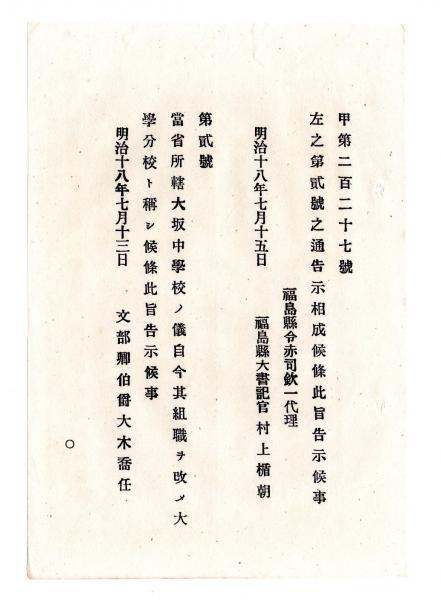 甲第二百二十七號
左之第貳號之通告示相成候條此旨告示候事
福島縣令赤司欽一代理
明治十八年七月十五日　福島縣大書記官村上楯朝
第貳號
當省所轄大坂中學校ノ儀自今其組職ヲ改メ大
學分校ト稱シ候條此旨告示候事
明治十八年七月十三日　文部卿伯爵大木喬任
○